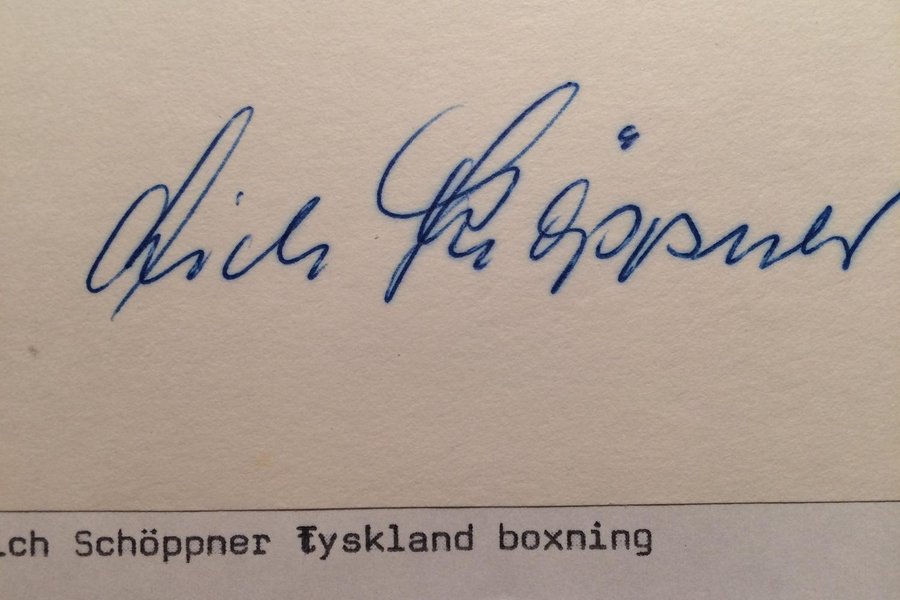 Erich Schöppner
ich Schöppner Tyskland boxning